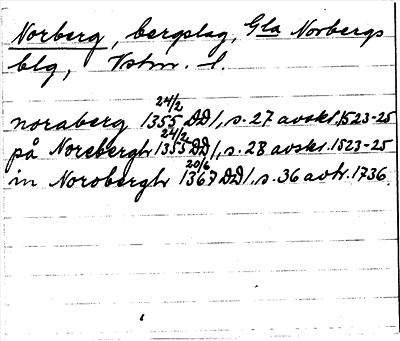 Norberg, bergslag, Gla Norbergs
blg, Vstm. l.
noraberg 24/2 1355 DD 1, s. 27 avskr. 1523-25
på Norebergh 24/2 1355 DD 1, s. 28 avskr. 1523-25
in Norobergh 20/6 1367 DD 1, s. 36 avtr. 1736.